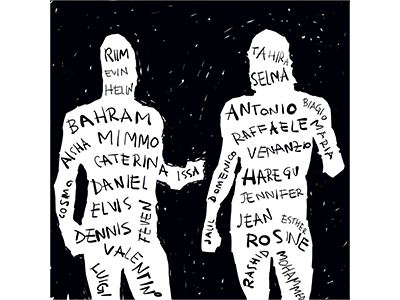 RIIM
EVIN
HELIN
BAHRAM
AISHA
MIMMO
CATERINA
ISSA
COSMO
DANIEL
ELVIS
FEVEN
DENNIS
VALENTINO
LUIGI
TAHIRA
SELMA
ANTONIO
BIAGIO
RAFFAELE
MARIA
VENANZIO
DOMENICO
HAREGU
JENNIFER
JALIL
JEAN
ESTHER
ROSINE
RASHID